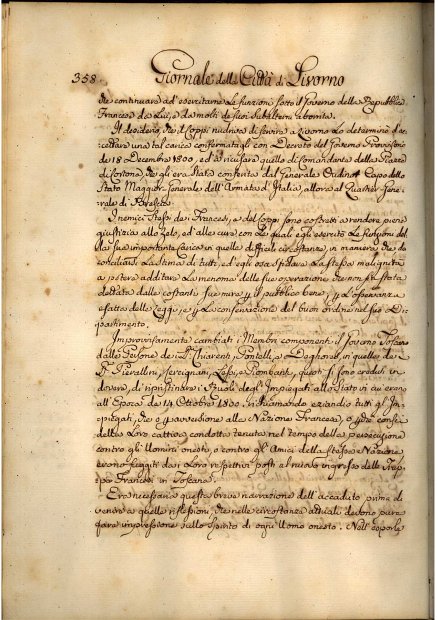 358. Giornale della Città di Livorno
che continuare ad' esercitarne le funzioni sotto il Governo della Repubblica
Francese da Lui, e da molti de suoi Subalterni abborrita.
Il desiderio, che il Coppi nudriva di servire a Livorno lo determinò d'ac-
cettare una tal carica confermatagli con Decreto del Governo Provvisorio
de 18 Decembre 1800, ed a ricusare quella di Comandante della Piazza
di Cortona, che gli era stata conferita dal Generale Oudinot Capo dello
Stato Maggior Generale dell'Armata d'Italia, allora al Quartier Gene-
rale di Brescia.
I nemici stessi dei Francesi, e del Coppi sono costretti a rendere piena
giustizia allo zelo, ed alle cure con le quali egli esercitò le funzioni del-
la sua importante carica in quelle difficili circostanze, in maniera che
conciliarsi la stima di tutti, ed egli osa sfidare la stessa malignità
a potere additare la menoma delle sue operazioni che non sia stata
dettata dalle costanti sue mire p il pubblico bene, p l'osservanza
esatta delle Leggi, e p la conservazione del buon ordine nel suo Di-
partimento.
Improvvisamente cambiati i Membri componenti il Governo Toscano
dalle Persone dei Chiarenti, Pontelli, e Deghores, in quelle dei
Pierallini, Sergrigni, Lessi, e Piombanti, questi si sono creduti in
dovere di ripristinare i Ruoli degl'Impiegati allo Stato in cui erano
all'Epoca de 14 Ottobre 1800, richiamando eziandio tutti gl'Im-
piegati, che p avversione alla Nazione Francese, o p
della loro cattiva condotta tenuta nel tempo della persecuzione
contro gli Uomini onesti, o contro gli Amici della stessa Nazione
erono fuggiti dai loro respettivi posti al nuovo ingresso delle Trup-
pe Francesi in Toscana.
Era necessaria questa breve narrazione dell'accaduto prima di
venire a quelle riflessioni, che nelle circostanze attuali devono pur
fare impressione sullo spirito di ogni Uomo onesto. Nell'esporle